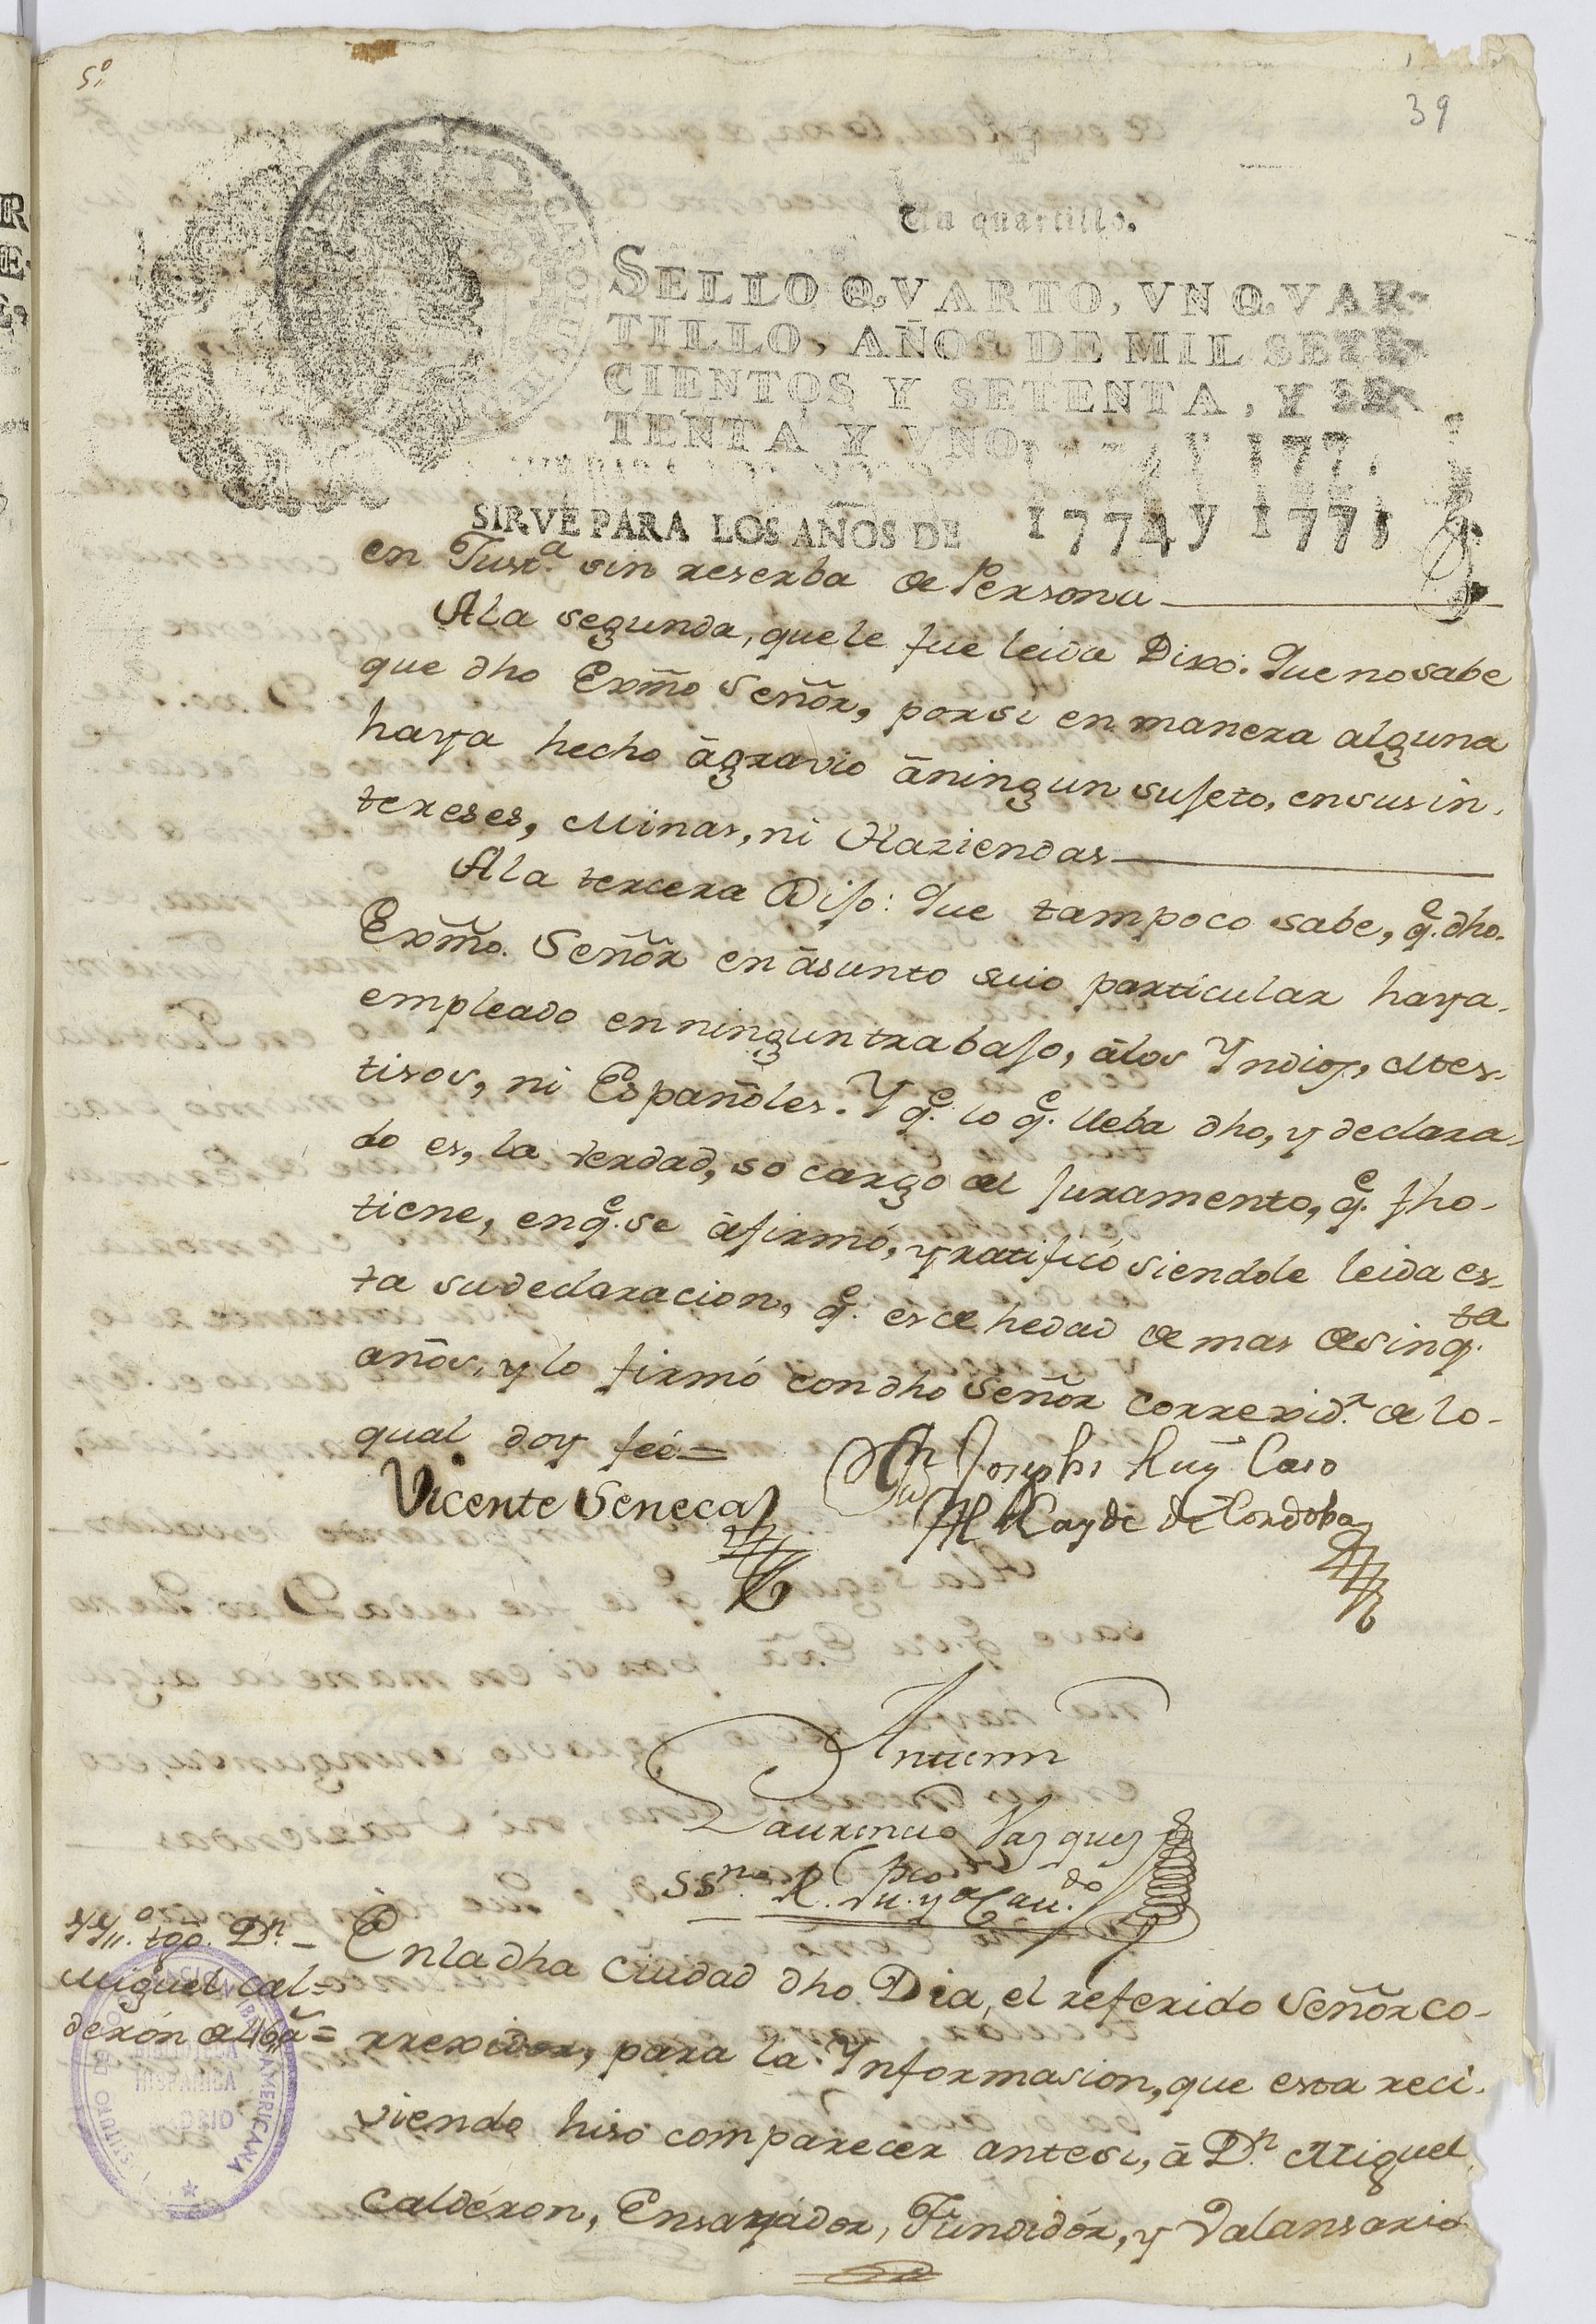 5º
39
Un quartillo.
SELLO QVARTO, VN QVAR-
TILLO, AÑOS DE MIL SETE-
CIENTOS Y SETENTA, Y SE-
TENTA Y VNO.
SIRVE PARA LOS AÑOS DE 1774 y 1775
en Just.ª sin reserba de Persona
Ala segunda, quele fue leida Dixo: Que no sabe
que dho Exmõ Señor, porsi en manera alguna
haya hecho agravio aningun sujeto, ensus in-
tereses, Minas, ni Haziendas
Ala tercera Dijo: Que tampoco sabe, q.e dho.
Exmõ. Señor en asunto suio particular haya
empleado enningun trabajo, alos Yndios, Mes-
tisos, ni Españoles. Y q.e lo q.e lleba dho, y declara-
do es, la verdad, so cargo del juramento, q.e fho
tiene, enq.e se afirmó, y ratificó siendole leida es-
ta sudeclaracion, q.e es de hedad de mas de sinq.ta
años, y lo firmó condho Señor correxid.r de lo
qual doy feé=
Vicente Seneca
Josephs Ruiz Caro
Al Cayde de Cordoba
Antemi
Laurencio Vazquez
SS.no R. Pu.co y de Cau.do
tgo. D.n
Miguel Cal=
derón de 46 a=
Enladha Ciudad dho Dia, el referido Señor co-
rrexidor, para la Ynformasion, que esta reci-
viendo hiso comparecer antesi, a D.n Miguel
Calderon, Ensayador, Fundidor, y Valansario
BIBLIOTECA
HISPANICA
MADRID